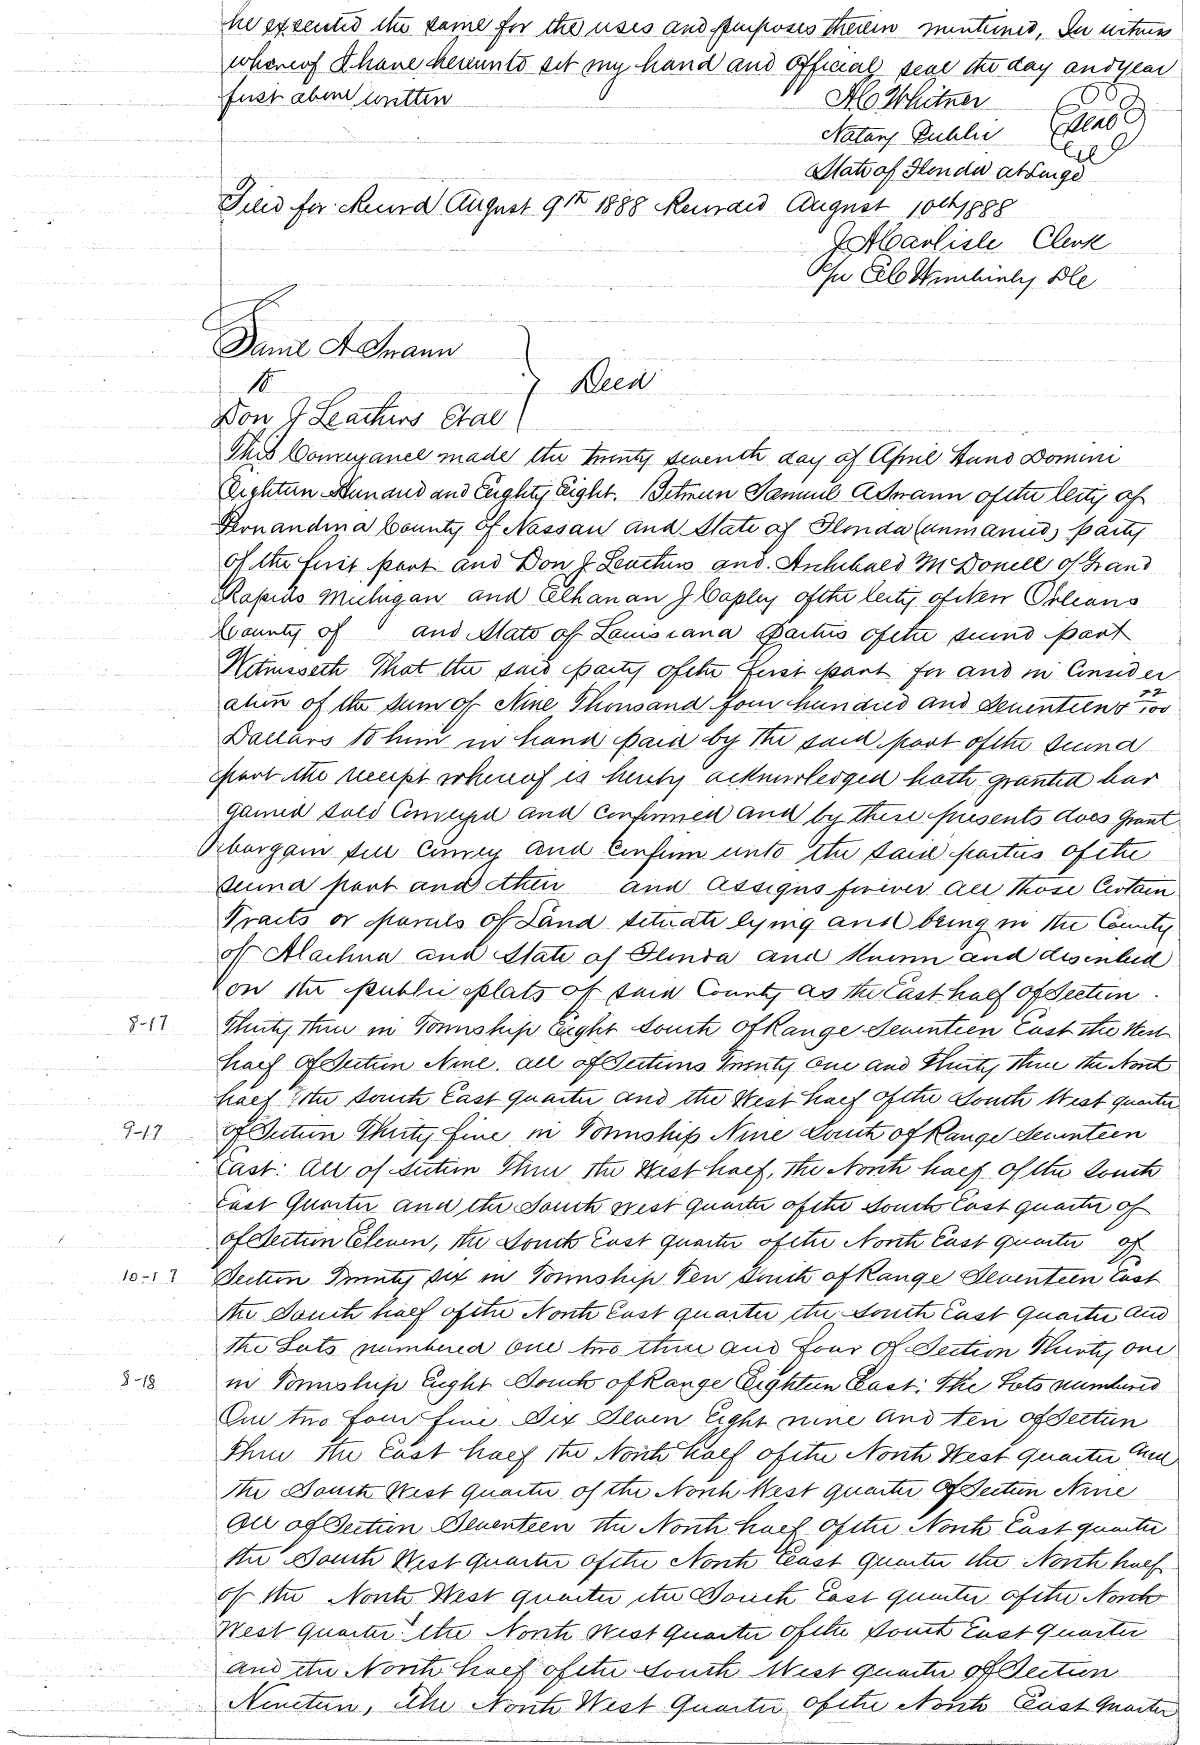 he executed the same for the uses and purposes therein mentioned, In witness
whereof I have hereunto set my hand and official seal the day and year
first above written
Whitner
Notary Public Seal
State of Florida at Large
Filed for Record August 9th 1888 Recorded August 10th 1888
J A Carlisle Clerk
Per DC
Saml A Swann
to
Deed
Don J Leathers Etal
This Conveyance made the twenty seventh day of April Anno Domini
Eighteen Hundred and Eighty Eight. Between Samuel A Swann of the City of
Fernandina County of Nassau and State of Florida (unmarried) party
of the first part and Don J Leathers and Archibald McDonell of Grand
Rapids Michigan and Elhanan J Copley of the City of New Orleans
County of and State of Louisiana parties of the second part
Witnesseth That the said party of the first part for and in Consider
ation of the sum of Nine Thousand four hundred and Seventeen & 22/100
Dollars to him in hand paid by the said part of the second
part the receipt whereof is hereby acknowledged hath granted bar
gained sold Conveyed and confirmed and by these presents does grant
bargain sell convey and Confirm unto the said parties of the
second part and their and assigns forever all those Certain
Tracts or parcels of Land situate lying and being in the County
of Alachua and State of Florida and known and described
on the public plats of said County as the East half of Section
8-17 Thirty three in Township Eight South of Range Seventeen East the West
half of Section Nine. all of Sections Twenty One and Thirty three the North
half the South East quarter and the West half of the South West quarter
9-17 of Section Thirty five in Township Nine South of Range Seventeen
East: All of Section Three the West half, the North half of the South
East Quarter and the South West quarter of the South East quarter of
of Section Eleven, the South East quarter of the North East quarter of
10-17 Section Twenty six in Township Ten South of Range Seventeen East
the South half of the North East quarter the South East Quarter and
the Lots numbered One two three and four Of Section Thirty one
8-18 in Township Eight South of Range Eighteen East: The Lots numbered
One two four five Six Seven Eight nine and ten of Section
Three the East half the North half of the North West quarter and
the South West quarter of the North West quarter of Section Nine
All of Section Seventeen the North half of the North East quarter
the South West quarter of the North East Quarter the North half
of the North West quarter the South East quarter of the North
West quarter the North West Quarter of the South East Quarter
and the North half of the South West quarter of Section
Nineteen, The North West Quarter of the North East Quarter